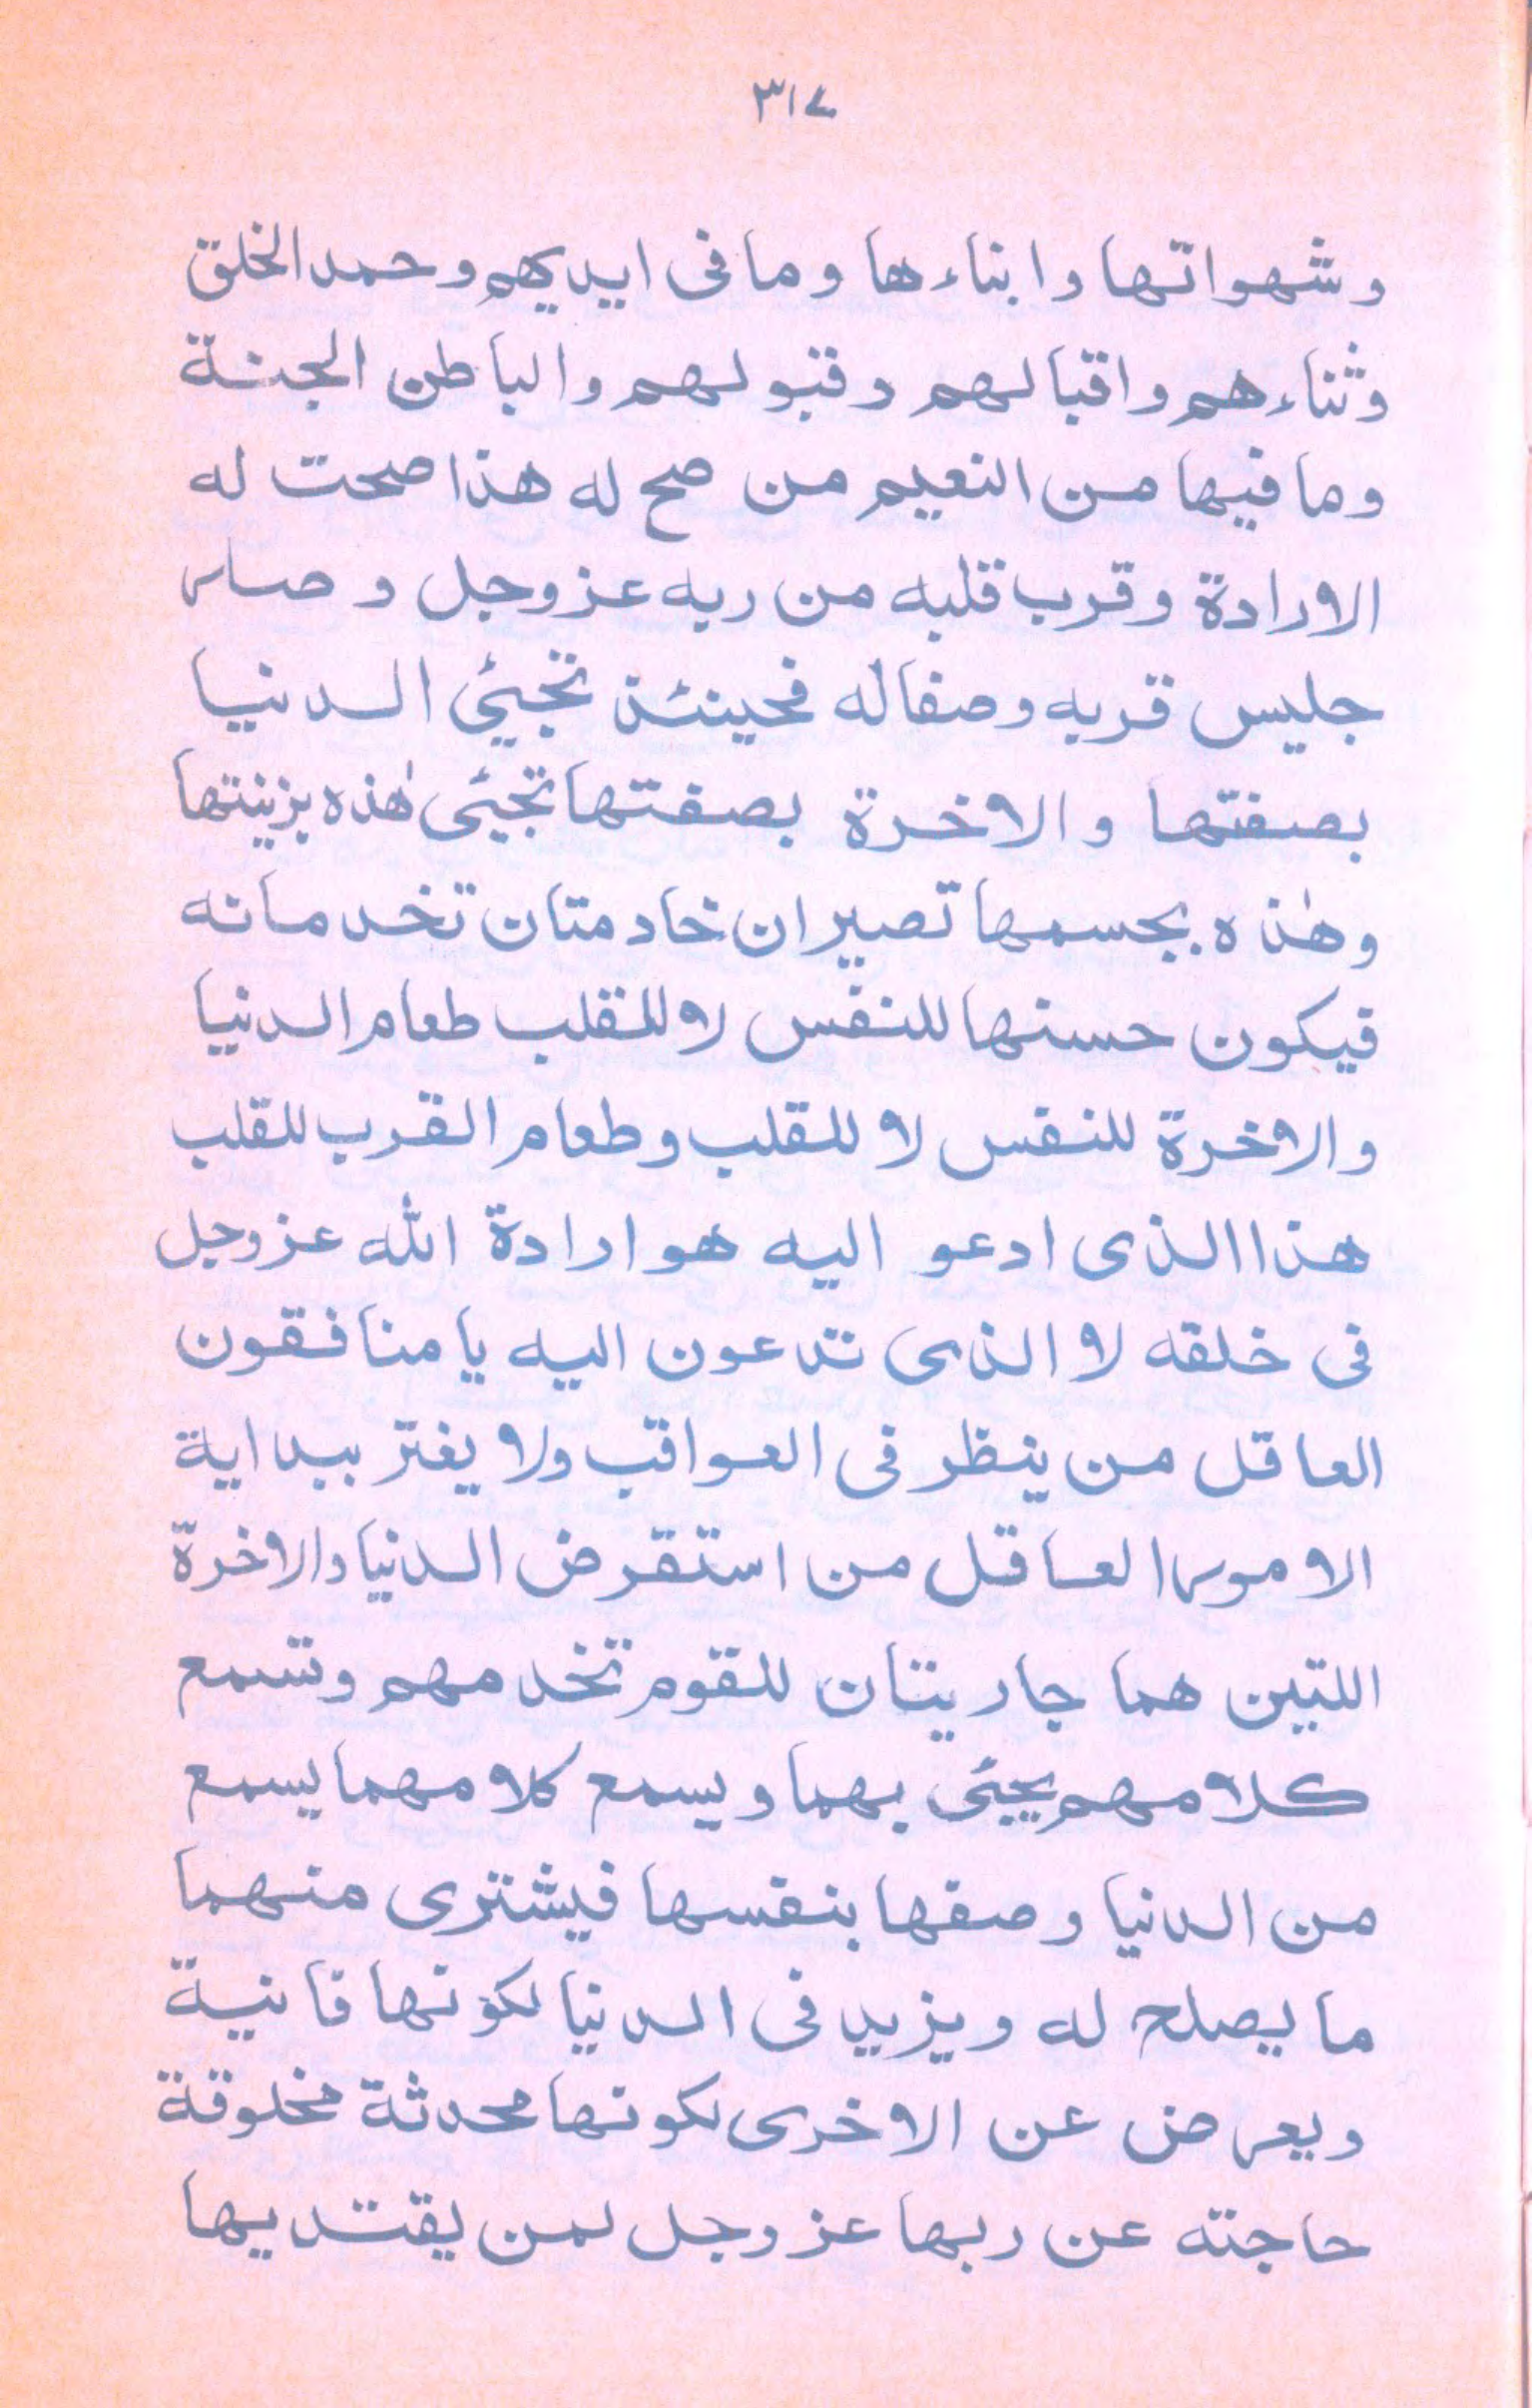 ٣١٧
وشهواتها وابناءها وما فى ايديهم وحمد الخلق
وثناءهم واقبالهم وقبولهم والباطن الجنة
وما فيها من النعيم من صح له هذا صحت له
الارادة وقرب قلبه من ربه عزوجل وصار
جليس قربه وصفاله فحينئذ تجيئ الدنيا
بصفتها والاخرة بصفتها تجيئى هٰذه بزينتها
وهٰذه بجسمها تصيران خادمتان تخدمانه
فيكون حسنها للنفس لا للقلب طعام الدنيا
والاخرة للنفس لا للقلب وطعام القرب للقلب
هذا الذى ادعو اليه هو ارادة الله عزوجل
فى خلقه لا الذى تدعون اليه يا منافقون
العاقل من ينظر فى العواقب ولا يغتر ببداية
الامور العاقل من استقرض الدنيا والاخرة
اللتين هما جاريتان للقوم تخدمهم وتسمع
كلامهم يجيئى بهما ويسمع كلامهما يسمع
من الدنيا وصفها بنفسها فيشترى منهما
ما يصلح له ويزيد فى الدنيا لكونها فانية
ويعرض عن الاخرى لكونها محدثة مخلوقة
حاجته عن ربها عزوجل لمن يقتديها